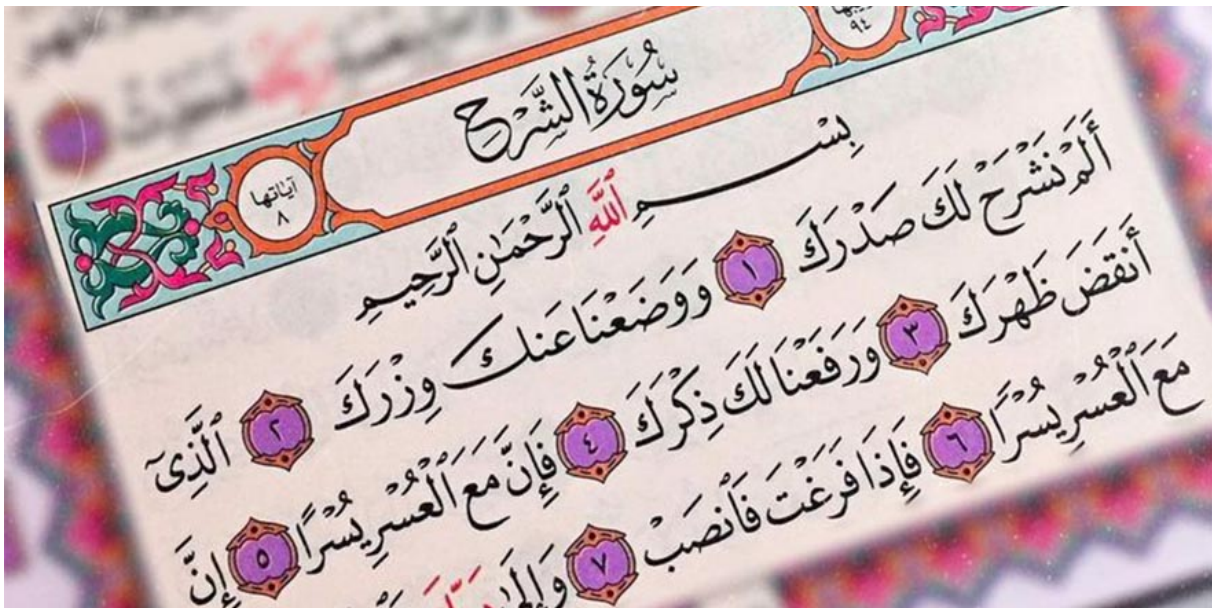 سُورَةُ الشَّرْحِ
آيَاتها
٨
٩٤
بِسْمِ ٱللَّهِ ٱلرَّحْمَـٰنِ ٱلرَّحِيمِ
أَلَمْ نَشْرَحْ لَكَ صَدْرَكَ ١ وَوَضَعْنَا عَنكَ وِزْرَكَ ٢ ٱلَّذِىٓ
أَنقَضَ ظَهْرَكَ ٣ وَرَفَعْنَا لَكَ ذِكْرَكَ ٤ فَإِنَّ مَعَ ٱلْعُسْرِ يُسْرًا ٥ إِنَّ
مَعَ ٱلْعُسْرِ يُسْرًا ٦ فَإِذَا فَرَغْتَ فَٱنصَبْ ٧ وَإِلَىٰ